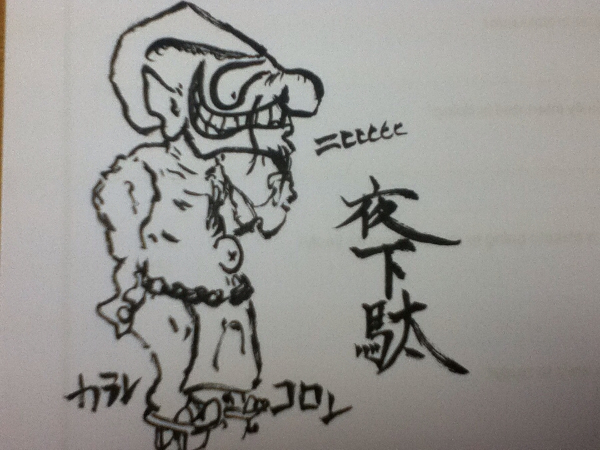 ニヒヒヒヒヒ
夜下駄
カラン
コロン